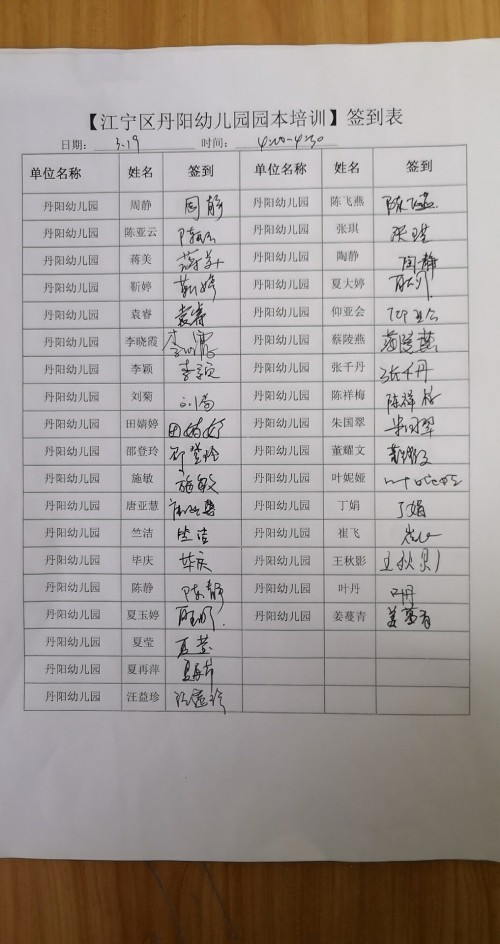 【江宁区丹阳幼儿园园本培训】签到表
日期: 3.19 时间: 4:00-4:30
单位名称 姓名 签到 单位名称 姓名 签到
丹阳幼儿园 周静 周静 丹阳幼儿园 陈飞燕 陈飞燕
丹阳幼儿园 陈亚云 陈亚云 丹阳幼儿园 张琪 张琪
丹阳幼儿园 蒋美 蒋美 丹阳幼儿园 陶静 陶静
丹阳幼儿园 靳婷 靳婷 丹阳幼儿园 夏大婷
丹阳幼儿园 袁睿 袁睿 丹阳幼儿园 仰亚会 仰亚会
丹阳幼儿园 李晓霞 李晓霞 丹阳幼儿园 蔡陵燕 蔡陵燕
丹阳幼儿园 李颖 李颖 丹阳幼儿园 张千丹 张千丹
丹阳幼儿园 刘菊 刘菊 丹阳幼儿园 陈祥梅 陈祥梅
丹阳幼儿园 田婧婷 田婧婷 丹阳幼儿园 朱国翠 朱国翠
丹阳幼儿园 邵登玲 邵登玲 丹阳幼儿园 董耀文 董耀文
丹阳幼儿园 施敏 施敏 丹阳幼儿园 叶妮娅
丹阳幼儿园 唐亚慧 唐亚慧 丹阳幼儿园 丁娟 丁娟
丹阳幼儿园 竺洁 竺洁 丹阳幼儿园 崔飞 崔飞
丹阳幼儿园 毕庆 毕庆 丹阳幼儿园 王秋影 王秋影
丹阳幼儿园 陈静 陈静 丹阳幼儿园 叶丹 叶丹
丹阳幼儿园 夏玉婷 丹阳幼儿园 姜蔓青 姜蔓青
丹阳幼儿园 夏莹 夏莹
丹阳幼儿园 夏再萍 夏再萍
丹阳幼儿园 汪益珍 汪益珍